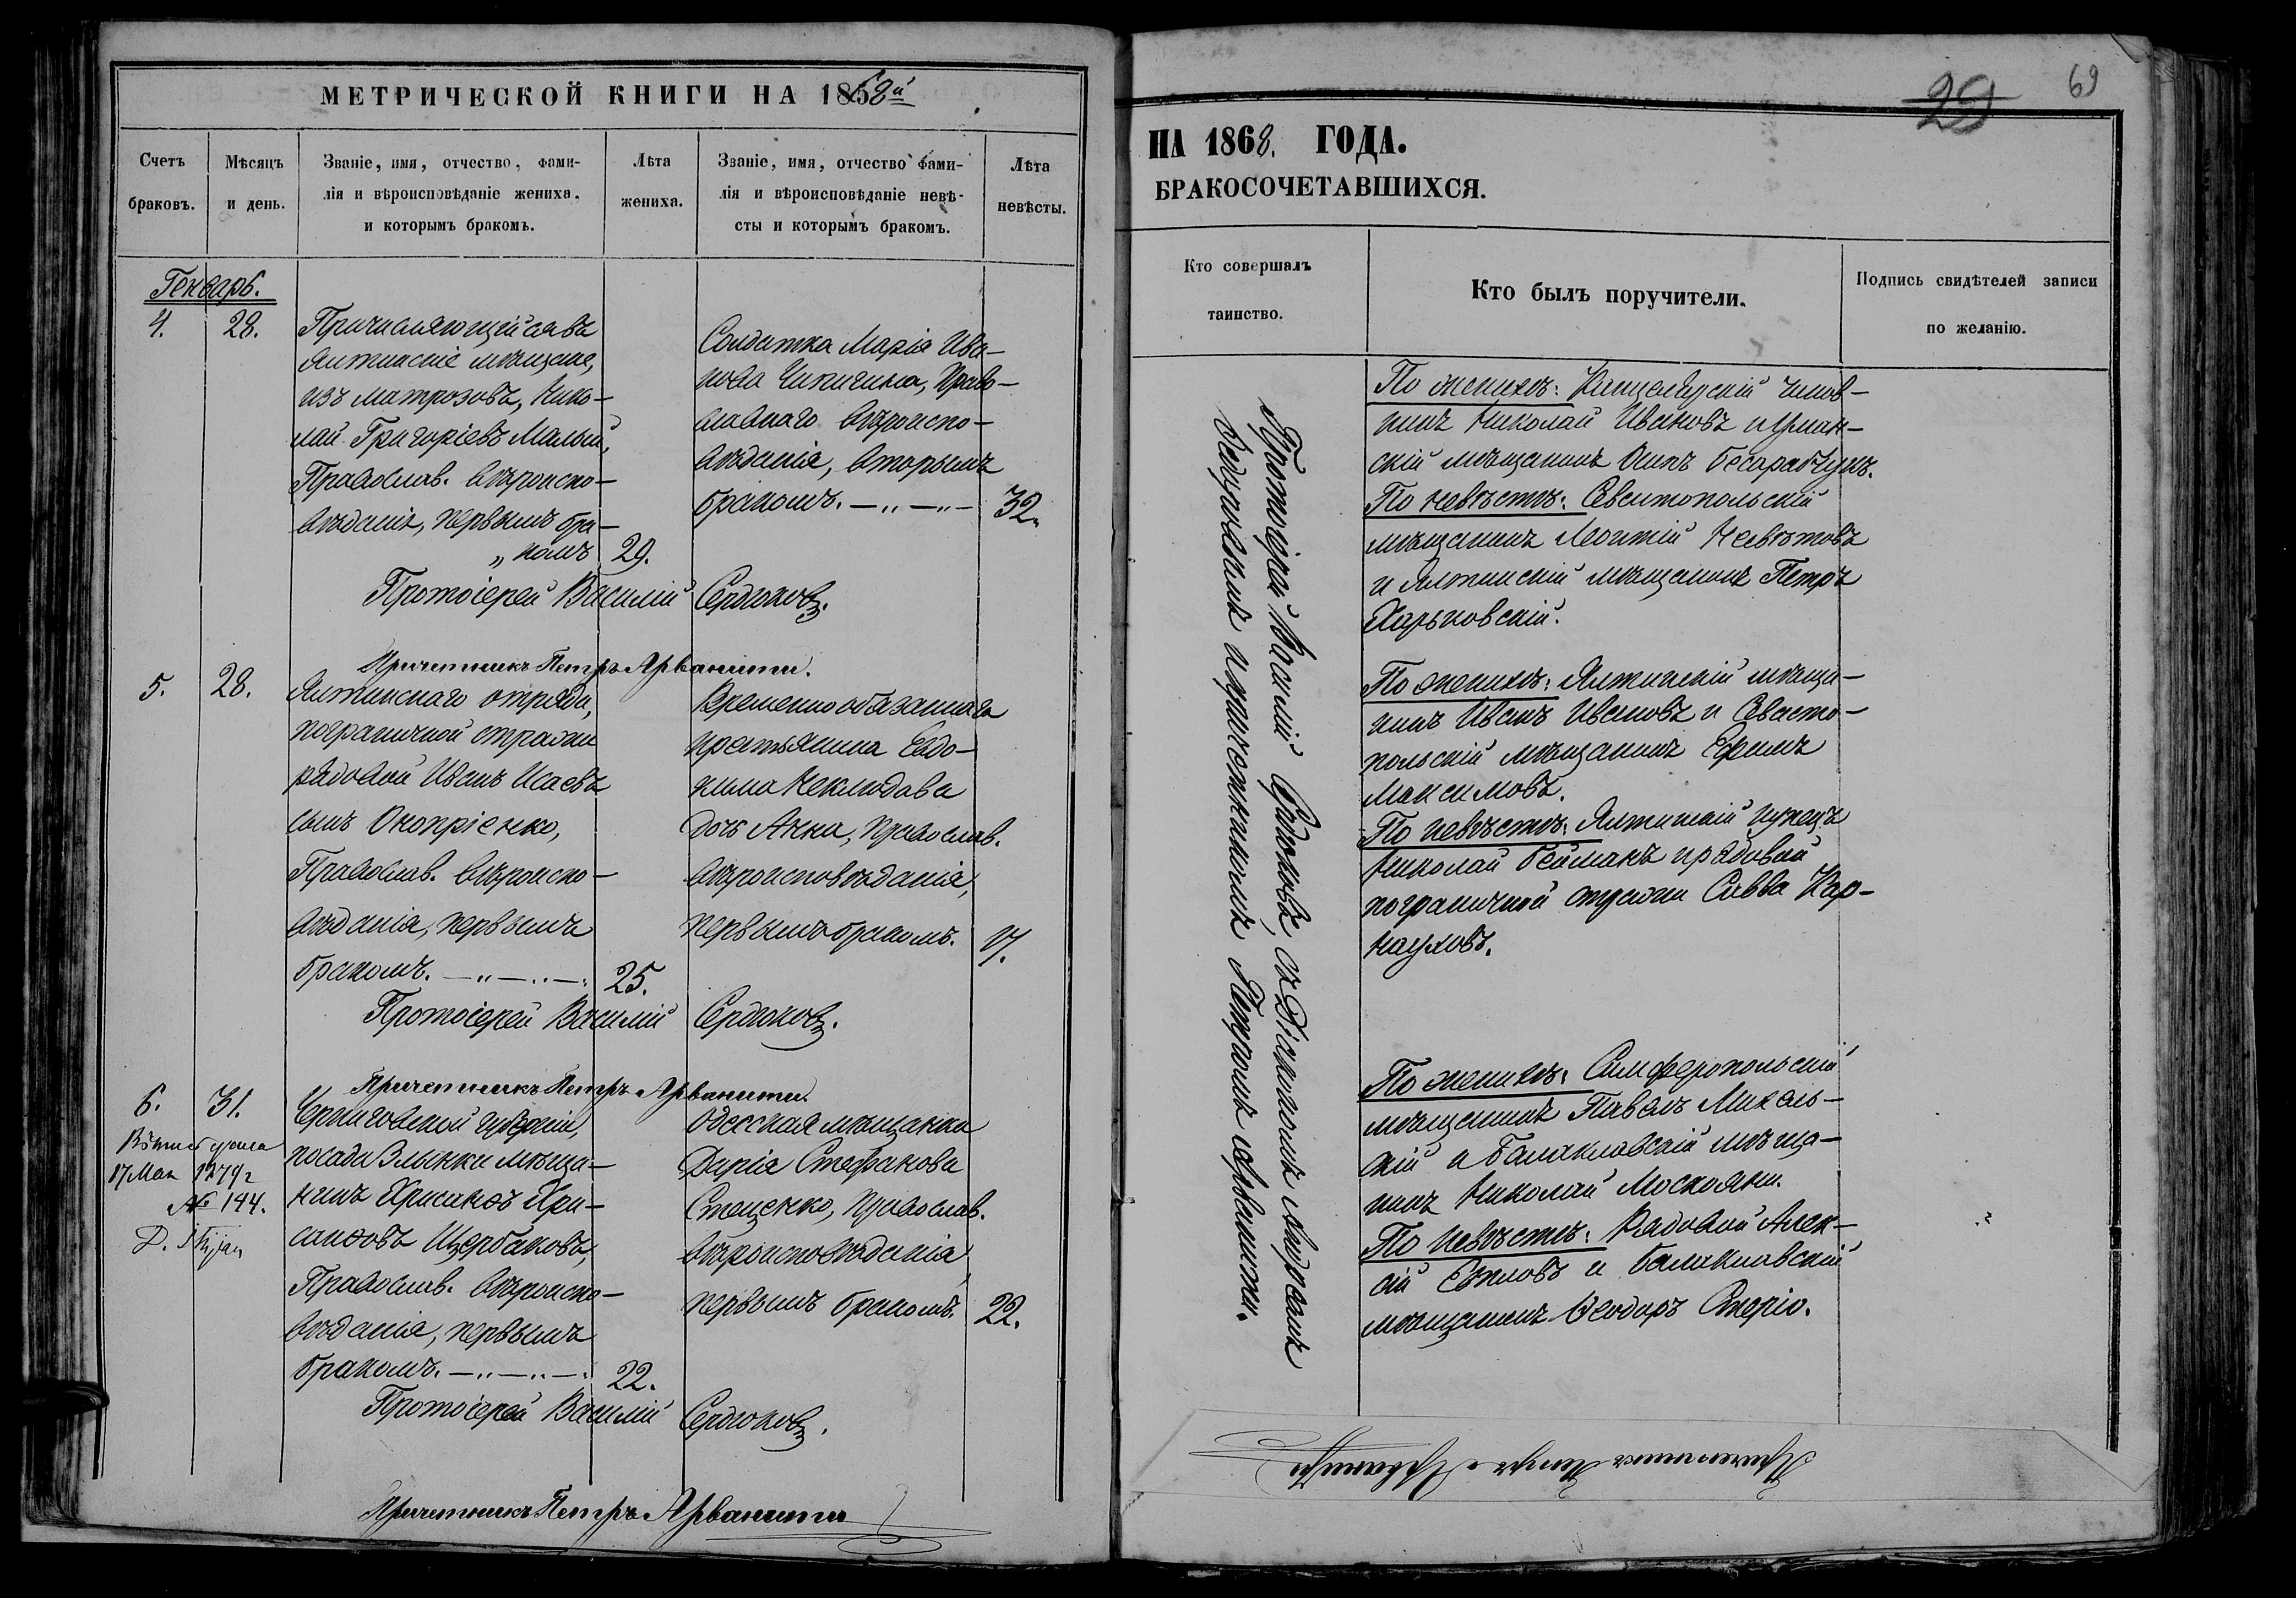 МЕТРИЧЕСКОЙ КНИГИ НА 1868й
Счетъ браковъ.
Мѣсяцъ и день.
Званіе, имя, отчество, фами-
лія и вѣроисповѣданіе жениха,
и которымъ бракомъ.
Лѣта жениха.
Званіе, имя, отчество фами-
лія и вѣроисповѣданіе невѣ-
сты и которымъ бракомъ.
Лѣта невѣсты.
Генварь.
4. 28.
Причисляющійся въ
Ялтинскіе мѣщане,
изъ матрозовъ, Нико-
лай Григоріевъ Малый,
Православ. вѣроиспо-
вѣданія, первымъ бра-
„ комъ 29.
Солдатка Марія Ива-
нова Чикичина, Право-
славнаго вѣроиспо-
вѣданія, вторымъ
бракомъ. — „ — „ — 32.
Протоіерей Василій Сердюковъ.
Причетникъ Петръ Арванити.
5. 28.
Ялтинскаго отряда,
пограничной стражи
рядовой Иванъ Исаевъ
сынъ Оноприенко,
Православ. вѣроиспо-
вѣданія, первымъ
бракомъ. — „ — „ — 25.
Временнообязаннаго
крестьянина Евдо-
кима Неклюдова
дочь Анна, Православ.
вѣроисповѣданія,
первымъ бракомъ. 17.
Протоіерей Василій Сердюковъ.
Причетникъ Петръ Арванити.
6. 31.
17 Мая 1879 г
№ 144.
Черниговской губерніи,
посада Злынки мѣща-
нинъ Хрисанѳъ Хри-
санѳовъ Щербаковъ,
Православ. вѣроиспо-
вѣданія, первымъ
бракомъ. — „ — „ — 22.
Одесская мѣщанка
Дарія Стефанова
Стеценко, Православ.
вѣроисповѣданія,
первымъ бракомъ. 22.
Протоіерей Василій Сердюковъ.
Причетникъ Петръ Арванити
29 69
НА 1868. ГОДА.
БРАКОСОЧЕТАВШИХСЯ.
Кто совершалъ таинство.
Кто былъ поручители.
Подпись свидѣтелей записи
по желанію.
Протоіерей Василій Сердюковъ, съ Діакономъ Андреемъ
и причетникомъ Петромъ Арванити.
По женихѣ: Канцелярскій чинов-
никъ Николай Ивановъ и
скій мѣщанинъ
По невѣстѣ: Севастопольскій
мѣщанинъ Леонтій
и Ялтинскій мѣщанинъ Петръ
Харьковскій.
По женихѣ: Ялтинскій мѣща-
нинъ Иванъ Ивановъ и Севасто-
польскій мѣщанинъ Ефимъ
Максимовъ.
По невѣстѣ: Ялтинскій купецъ
Николай Гейманъ и рядовой
пограничной стражи Савва Кар-
науховъ.
По женихѣ: Симферопольскій
мѣщанинъ Павелъ Михаль-
скій и Балаклавскій мѣща-
нинъ Николай Москояни.
По невѣстѣ: Рядовой Алек-
сій и Балаклавскій
мѣщанинъ Ѳеодоръ Стеріо.
Причетникъ Петръ Арванити